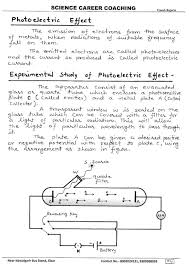 SCIENCE CAREER COACHING
Photoelectric Effect
The emission of electrons from the surface
of metals when radiations of suitable frequency
fall on them.
The emitted electrons are called photoelectrons
and the current so produced is called
photoelectric current.
Experimental Study of Photoelectric Effect-
The apparatus consist of an evacuated
glass or quartz tube which encloses a photosensitive
plate C (called emitter) and a metal plate A (called
Collector).
A transparent window is sealed on the
glass tube which can be covered with a filter for
a light of particular radiation. This will allow
the light of particular wavelength to pass through
it.
The plate A can be given a desired positive
or negative potential with respect to plate C, using
the arrangement as shown in figure.
S Source
Quartz
window
C
A
Reversing Key